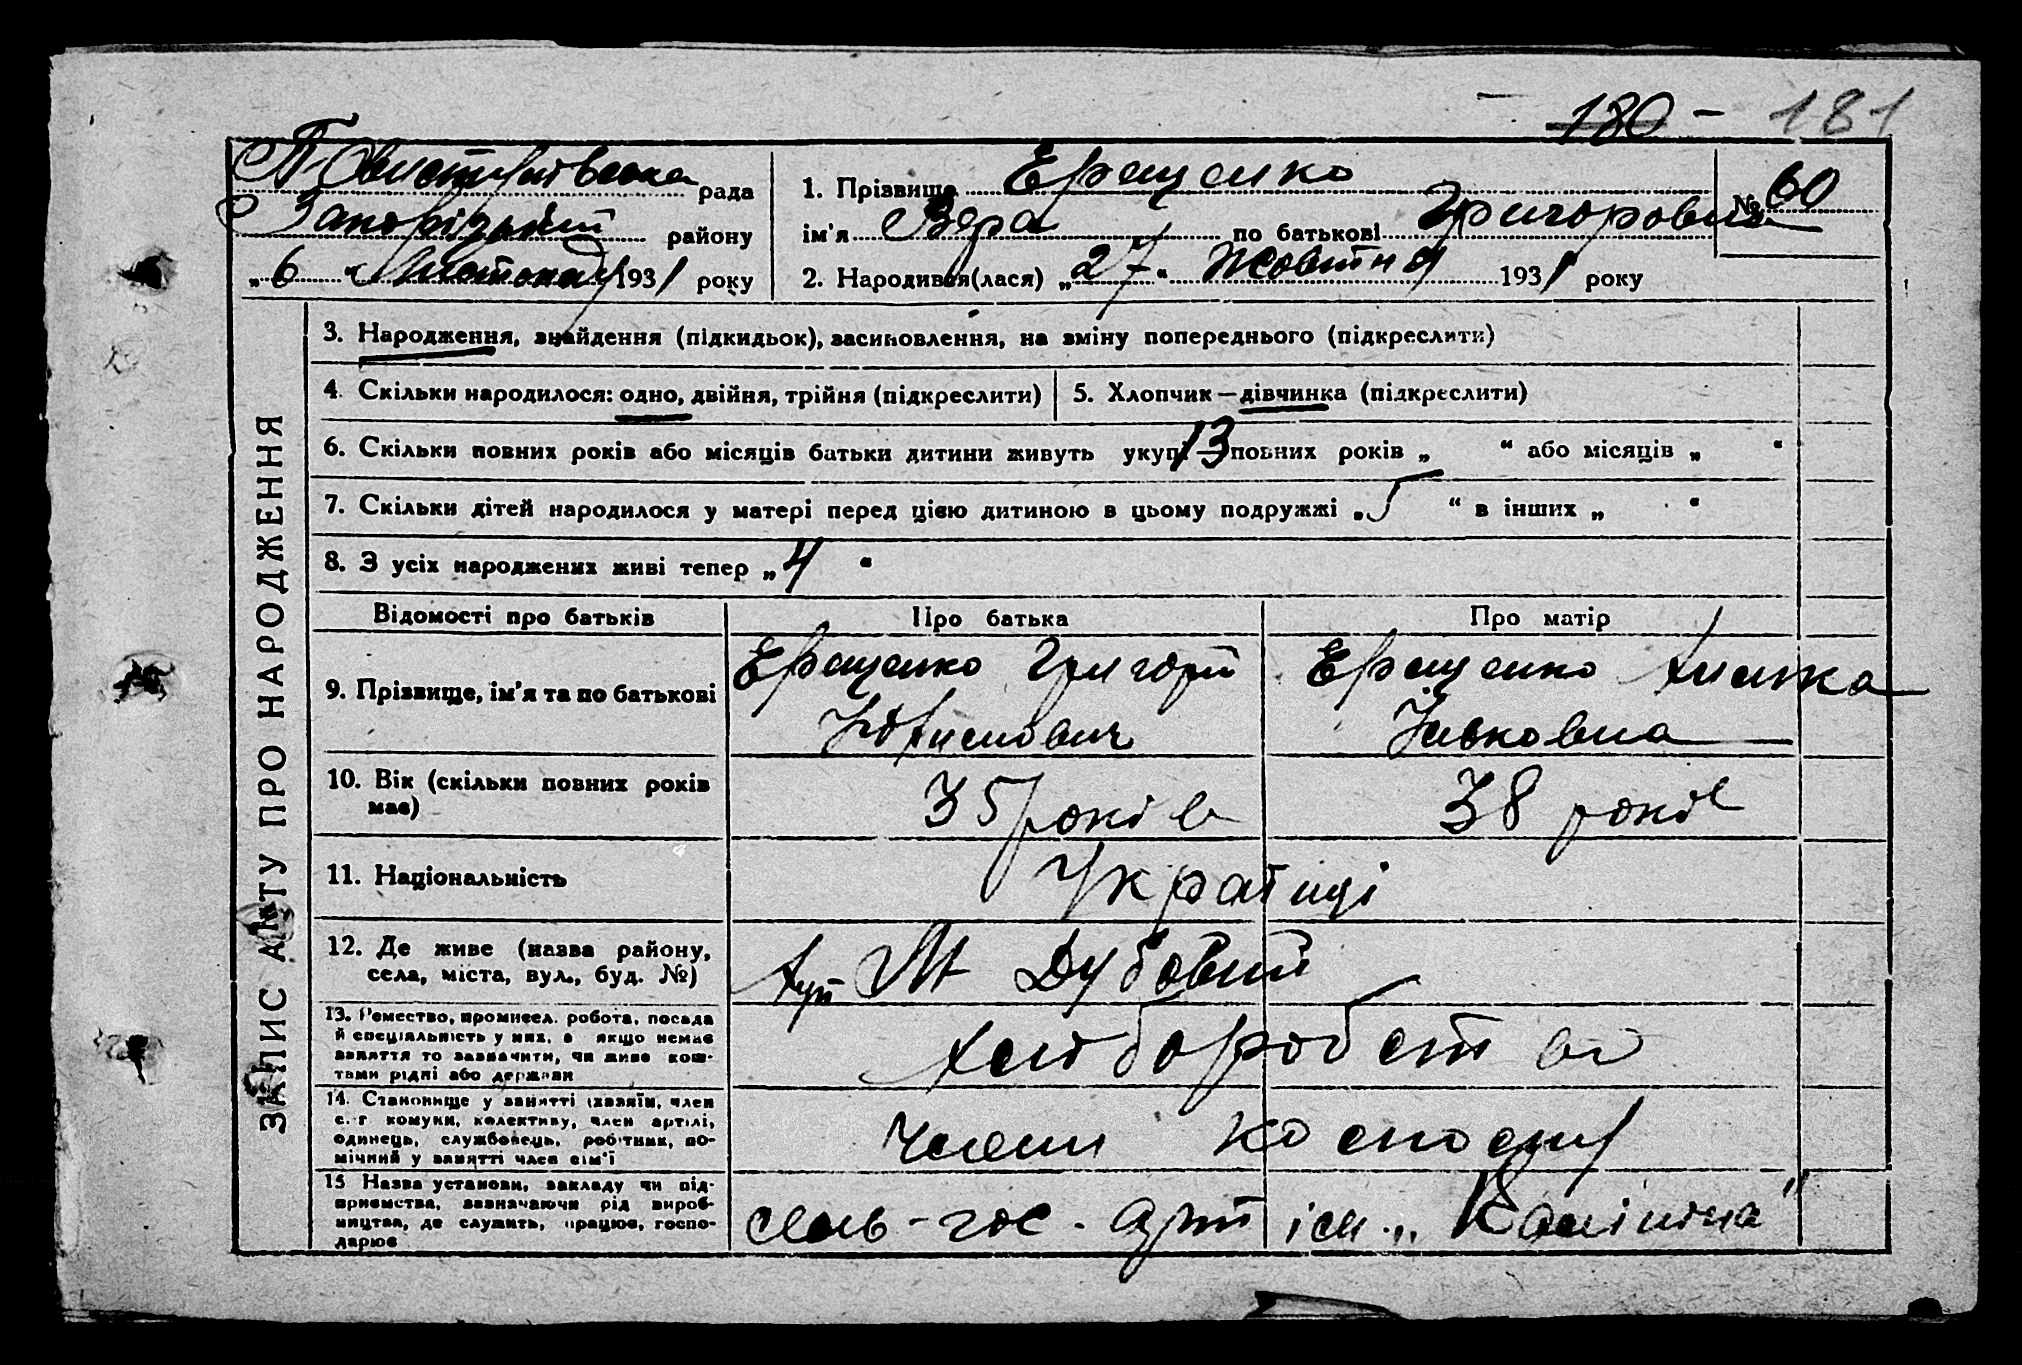 180 - 181
рада
1. Прізвище Ерещенко
№ 60
Запорізький району
ім'я Вера по батькові Григоровна
„ 6 “ Листопад 1931 року
2. Народився(лася) „ 27 “ Жовтня 1931 року
ЗАПИС АКТУ ПРО НАРОДЖЕННЯ
3. Народження, знайдення (підкидьок), засиновлення, на зміну попереднього (підкреслити)
4. Скільки народилося: одно, двійня, трійня (підкреслити)
5. Хлопчик — дівчинка (підкреслити)
6. Скільки повних років або місяців батьки дитини живуть укупі 13 повних років „ “ або місяців „ “
7. Скільки дітей народилося у матері перед цією дитиною в цьому подружжі „ 5 “ в інших „ “
8. З усіх народжених живі тепер „ 4 “
Відомості про батьків
Про батька
Про матір
9. Прізвище, ім'я та по батькові
Ерещенко Григорій
Ерещенко
10. Вік (скільки повних років має)
35 років
38 років
11. Національність
Українці
12. Де живе (назва району, села, міста, вул., буд. №)
Хут М Дубовий
13. Ремество, промисел, робота, посада
й спеціяльність у них, а якщо немає
заняття то зазначити, чи живе кош-
тами рідні або держави
Хліборобств
14. Становище у занятті (хазяїн, член
с.-г комуни, колективу, член артілі,
одинець, службовець, робітник, по-
мічний у занятті член сім'ї
Члени
15 Назва установи, закладу чи під-
приємства, зазначаючи рід вироб-
ництва, де служить, працює, госпо-
дарює
сель-гос. арт ім. „Калініна"